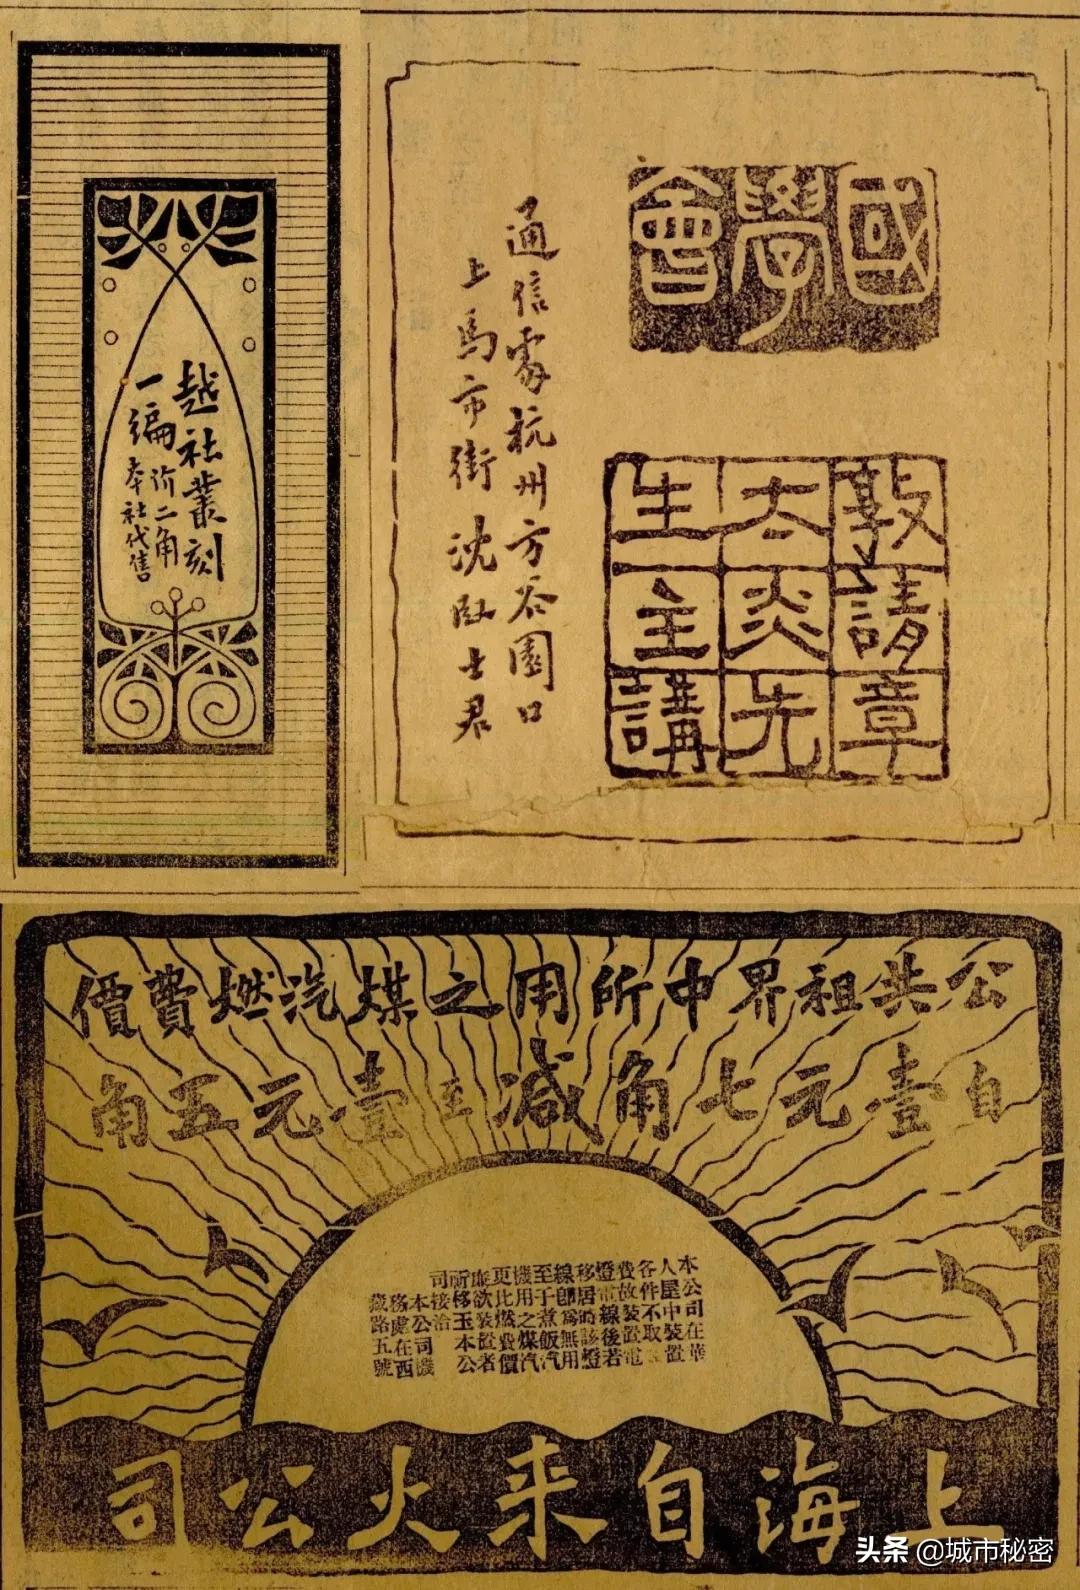 越社叢刻
一編 价二角
本社代售
國學會
敦請章
太炎先
生主講
通信處杭州方谷園口
上馬市街 沈臥士君
公共租界中所用之煤汽燃費價
自壹元七角減至壹元五角
本公司在華
人屋中裝置
各件不取
費故裝置電
燈電線後若
移居時該燈
線卽爲無用
至于煮飯汽
機用之煤汽
更比燃費價
廉欲裝置者
祈移玉本公
司接洽
本公司機
務處在西
藏路五號
上海自来火公司
头条 @城市秘密